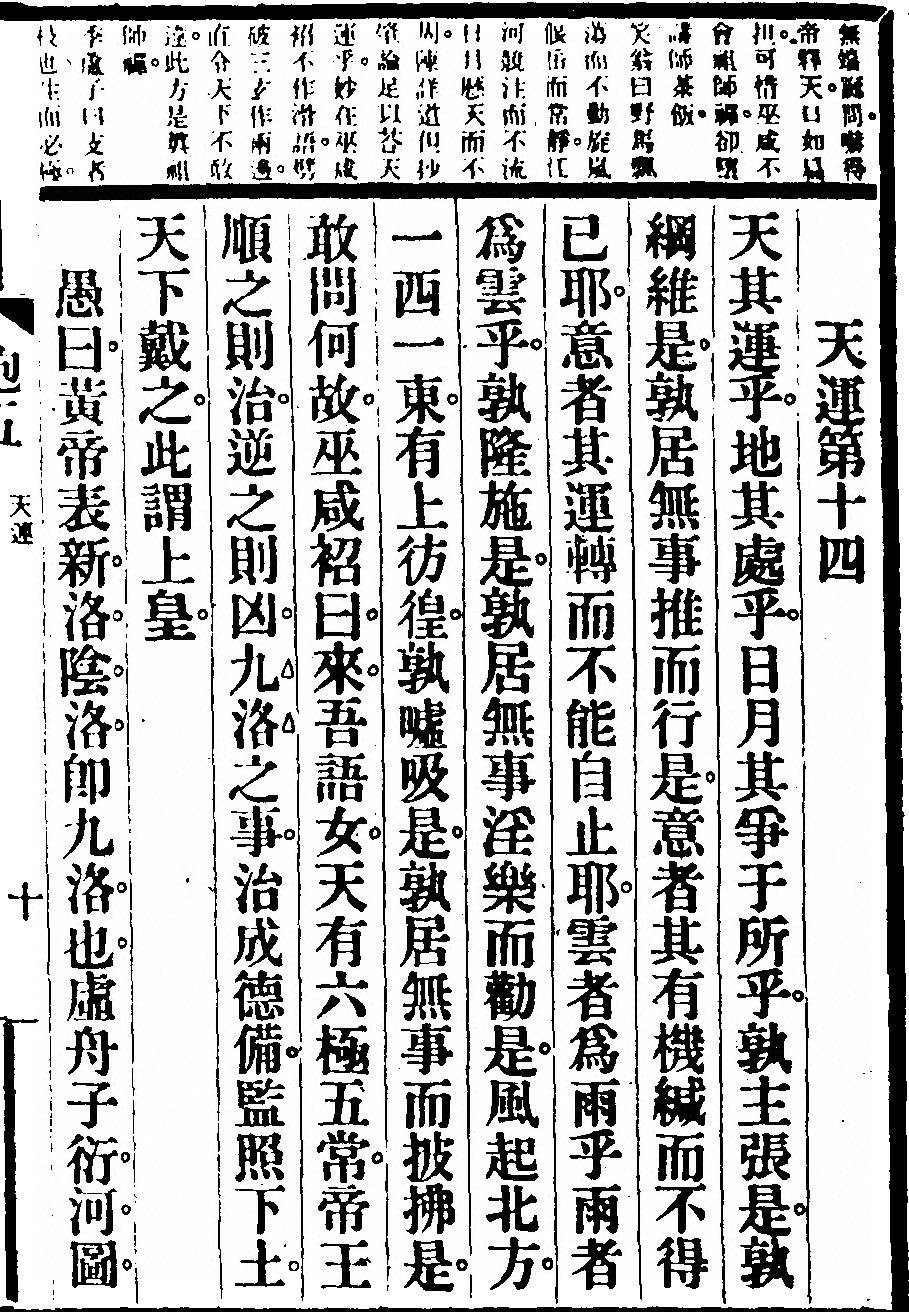 無 問嚇得
帝釋天口如扁
担可惜巫咸不
會祖師禪卻墮
講師茶飯
笑翁曰野馬飄
而不動旋嵐
偃岳而常靜江
河競注而不流
日月歷天而不
周陳詳道但抄
肇論足以荅天
運乎妙在巫咸
祒不作滑語劈
破三玄作兩邊
直令天下不敢
違此方是眞祖
師禪
子曰支者
枝也生而必極
天運第十四
天其運乎地其處乎日月其爭于所乎孰主張是孰
綱維是孰居無事推而行是意者其有機緘而不得
已耶意者其運轉而不能自止耶雲者爲雨乎雨者
爲雲乎孰隆施是孰居無事淫樂而勸是風起北方
一西一東有上彷徨孰噓吸是孰居無事而披拂是
敢問何故巫咸祒曰來吾語女天有六極五常帝王
順之則治逆之則凶九洛之事治成德備監照下土
天下戴之此謂上皇
愚曰黃帝表新洛陰洛卽九洛也虛舟子衍河圖
天運
十